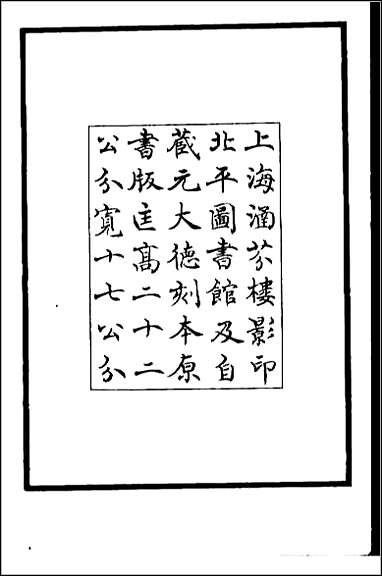 上海涵芬樓影印
北平圖書館及自
藏元大德刻本原
書版匡高二十二
公分寬十七公分